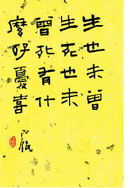 生也未曾
生死也未
曾死有什
麼好憂喜